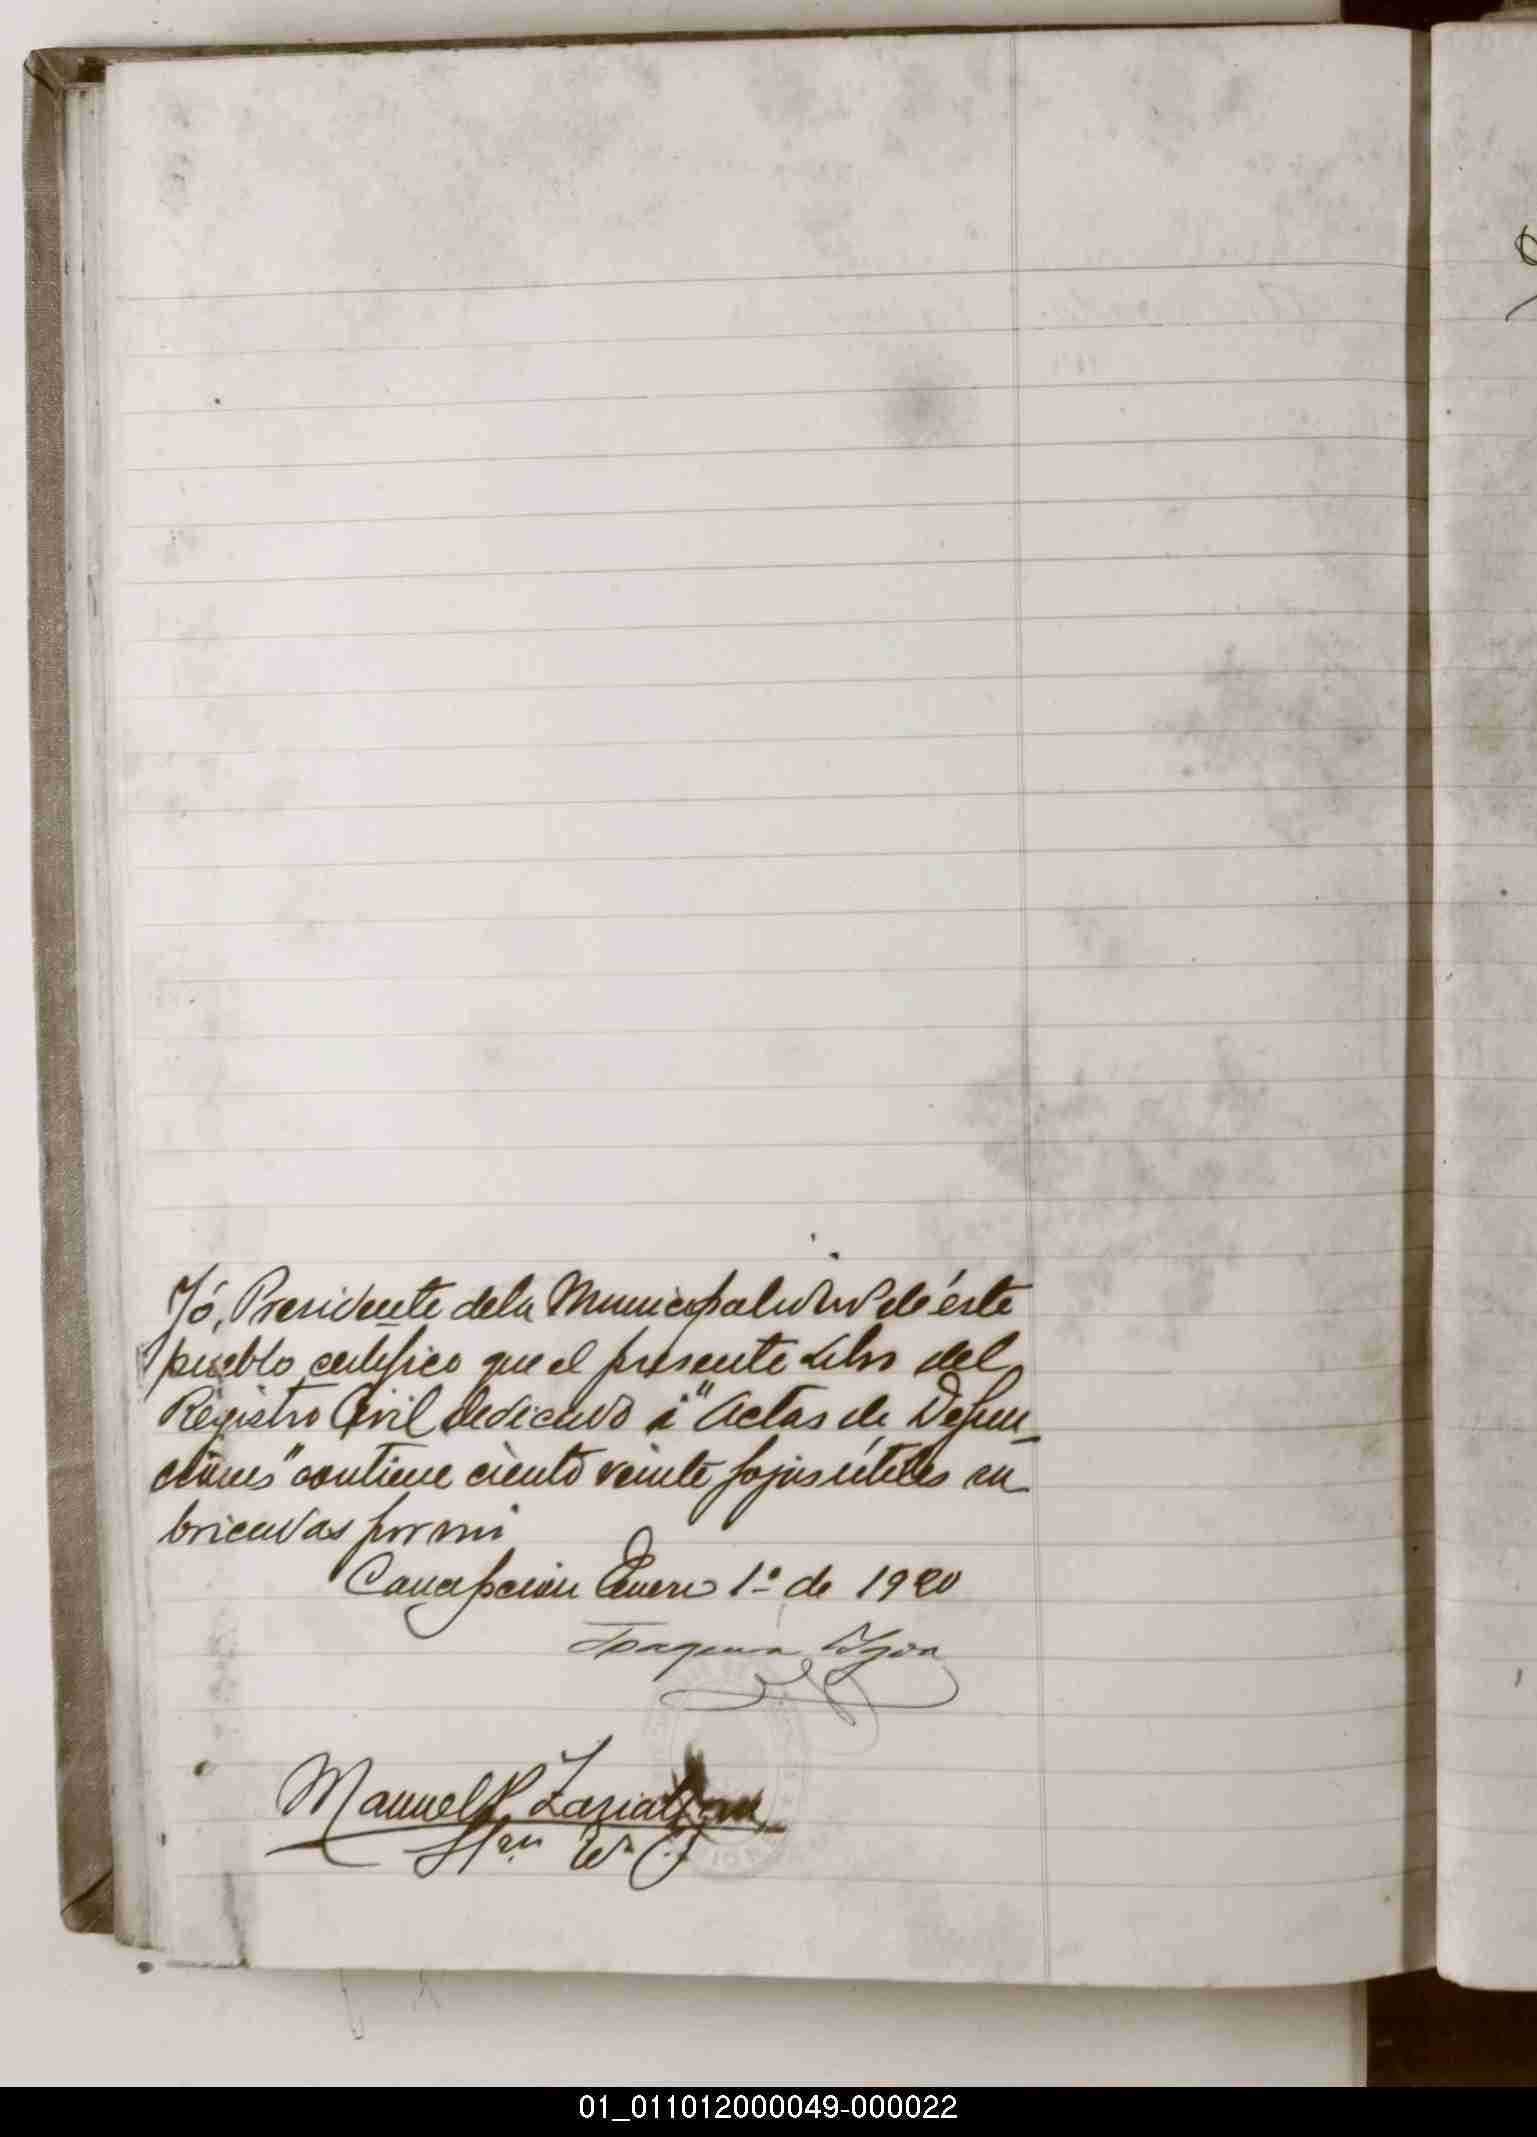 Yó, Presidente dela Municipalidad de éste
pueblo, certifico que el presente Libro del
Registro Civil dedicado á "Actas de Defun-
ciones" contiene ciento veinte fojas útiles ru
bricadas por mi
Concepción Enero 1º de 1920
Joaquin
Manuel
01_011012000049-000022